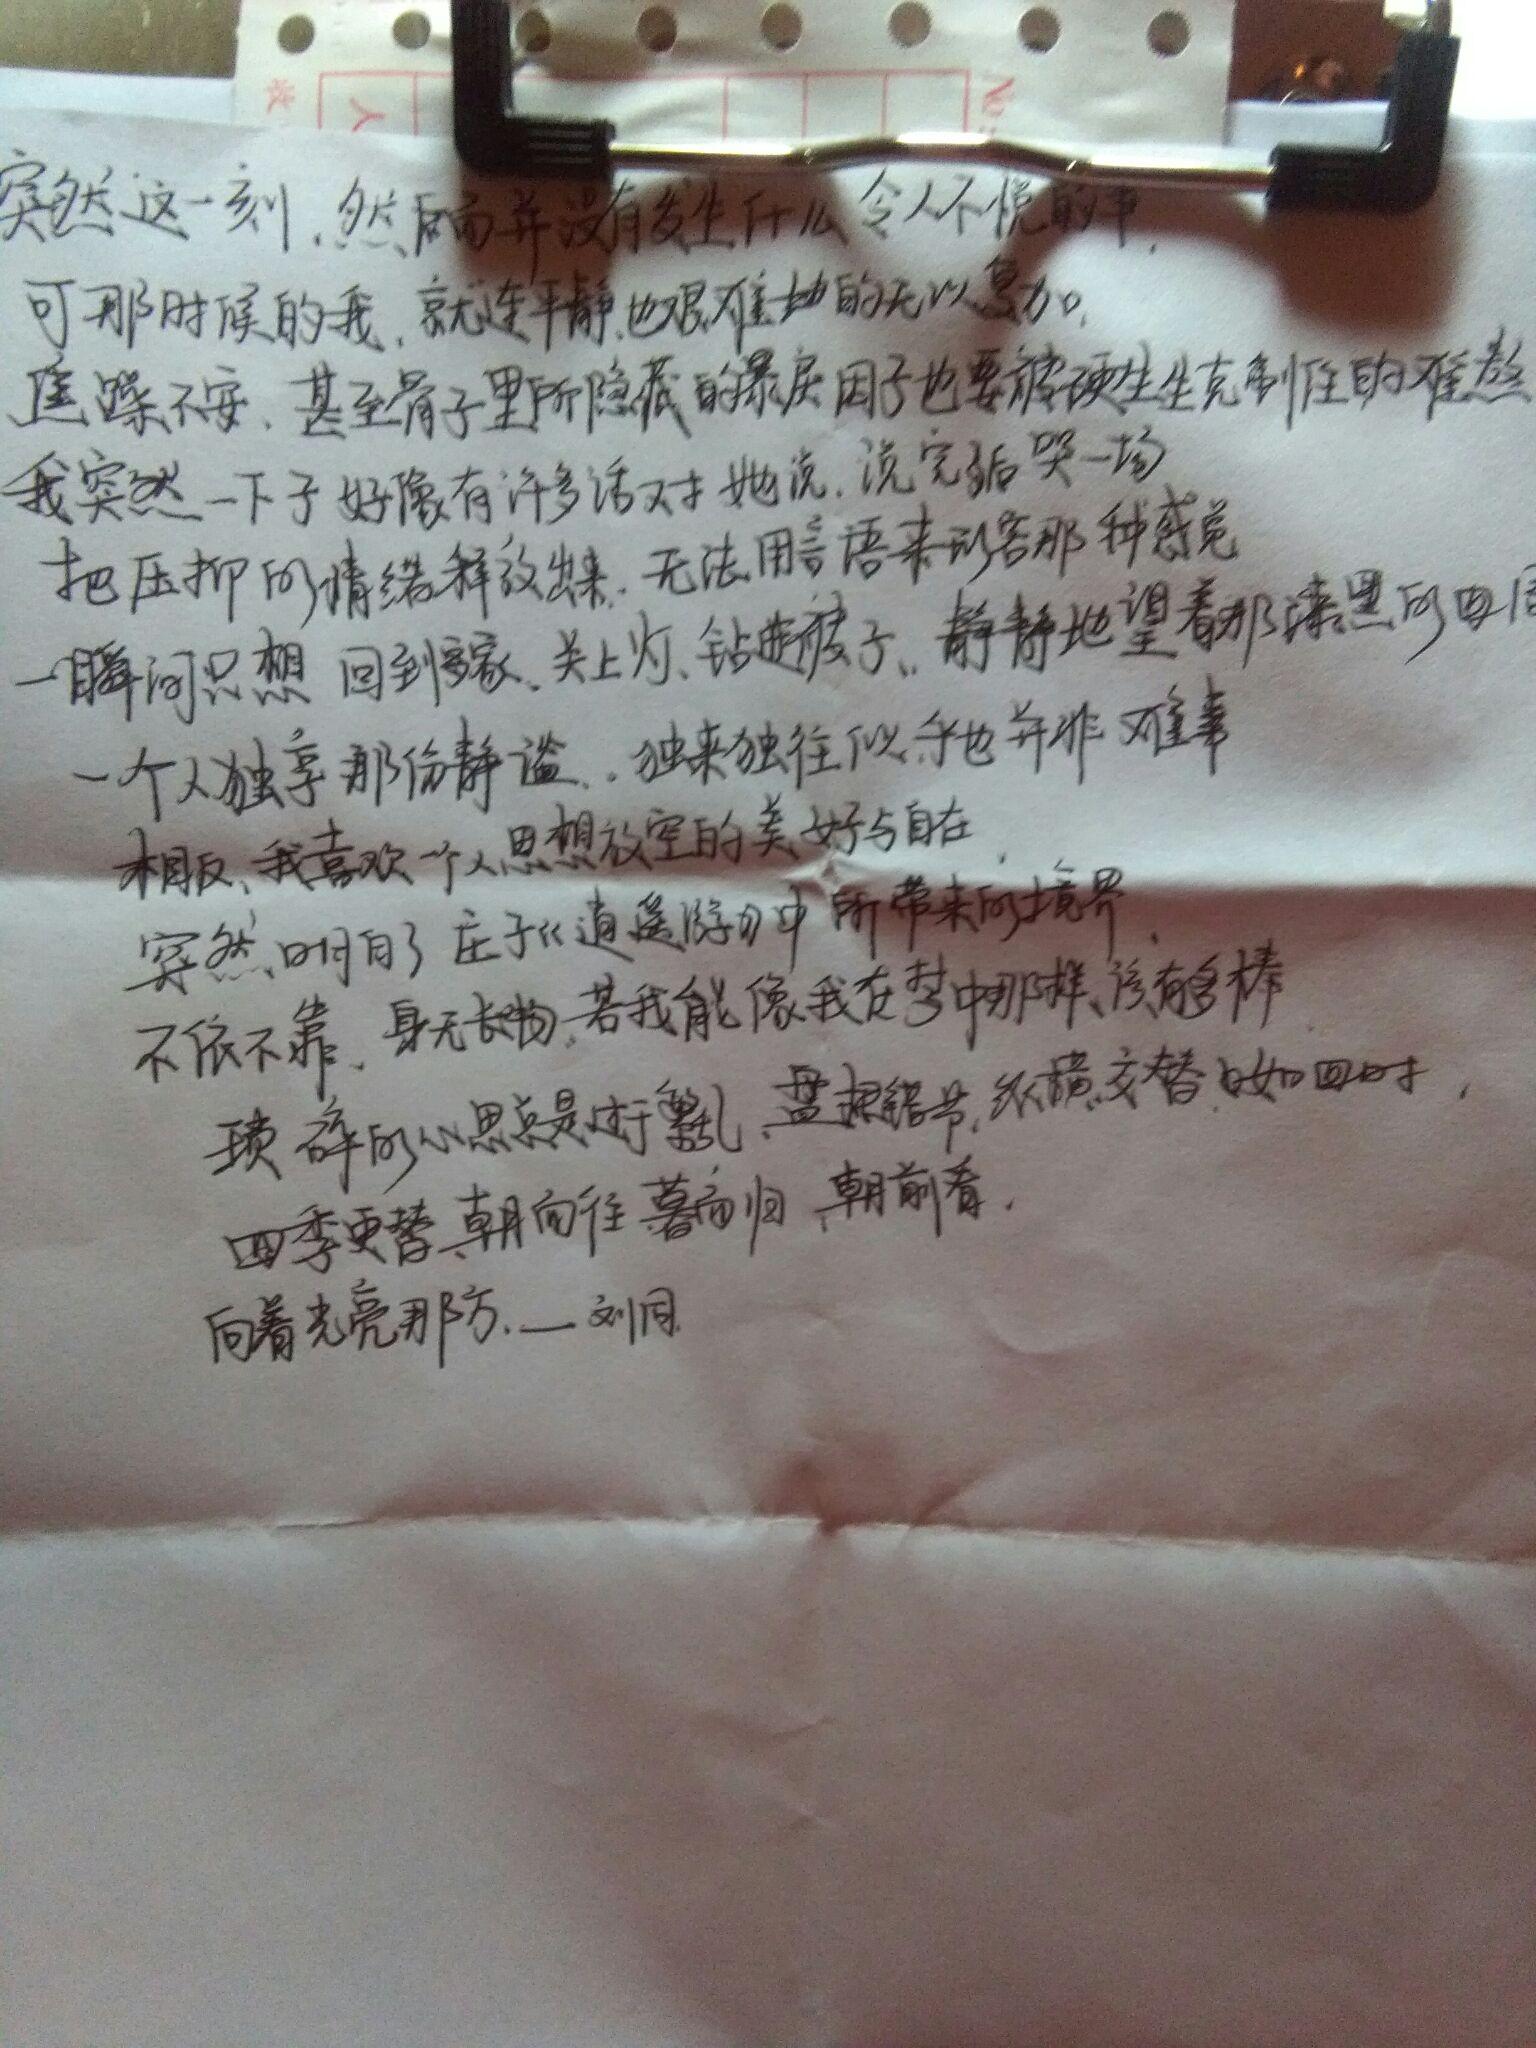 收
人
No:
突然这一刻,然后而并没有发生什么令人不悦的事,
可那时候的我,就连平静也艰难地的无以复加,
焦躁不安、甚至骨子里所隐藏的暴戾因子也要被硬生生克制住的难熬
我突然一下子好像有许多话对她说,说完后哭一场
把压抑的情绪释放出来,无法用言语来形容那种感觉
一瞬间只想回到家、关上灯、钻进被子、静静地望着那漆黑的四周
一个人独享那份静谧..独来独往似乎也并非难事
相反、我喜欢一个人思想放空的美好与自在,
突然明白了庄子《逍遥游》中所带来的境界,
不依不靠、身无长物,若我能像我在梦中那样、该有多棒
琐碎的心思总是过于繁乱、盘根错节,纵横交替,日如四时,
四季更替、朝向往暮而归、朝前看.
向着光亮那方.—刘同.